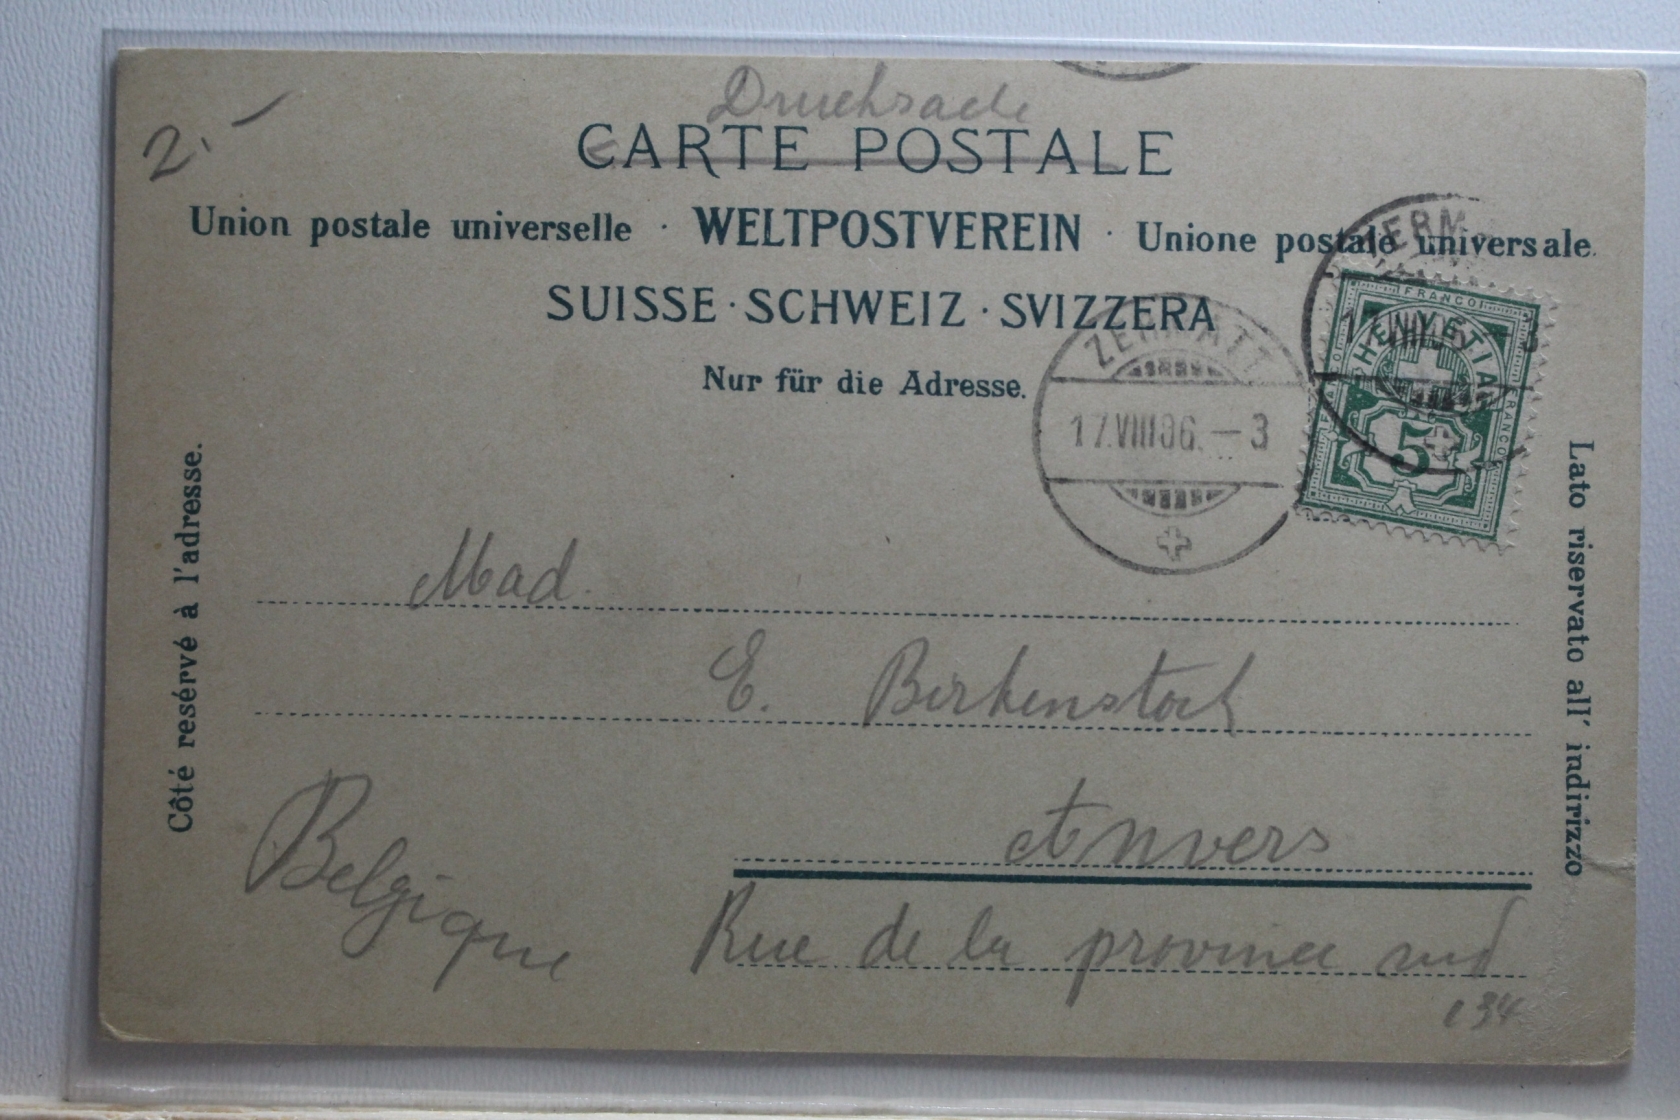 Drucksache
2.-
CARTE POSTALE
Union postale universelle · WELTPOSTVEREIN · Unione postale universale.
SUISSE · SCHWEIZ · SVIZZERA
Nur für die Adresse.
ZERMATT
17.VIII.06.-3
ZERM
17.VIII 3
FRANCO
HELVETIA
FRANCO
5
Côté resérvé à l'adresse.
Lato riservato all' indirizzo
Mad.
E. Birkenstock
Anvers
Belgique
Rue de la province sud
134